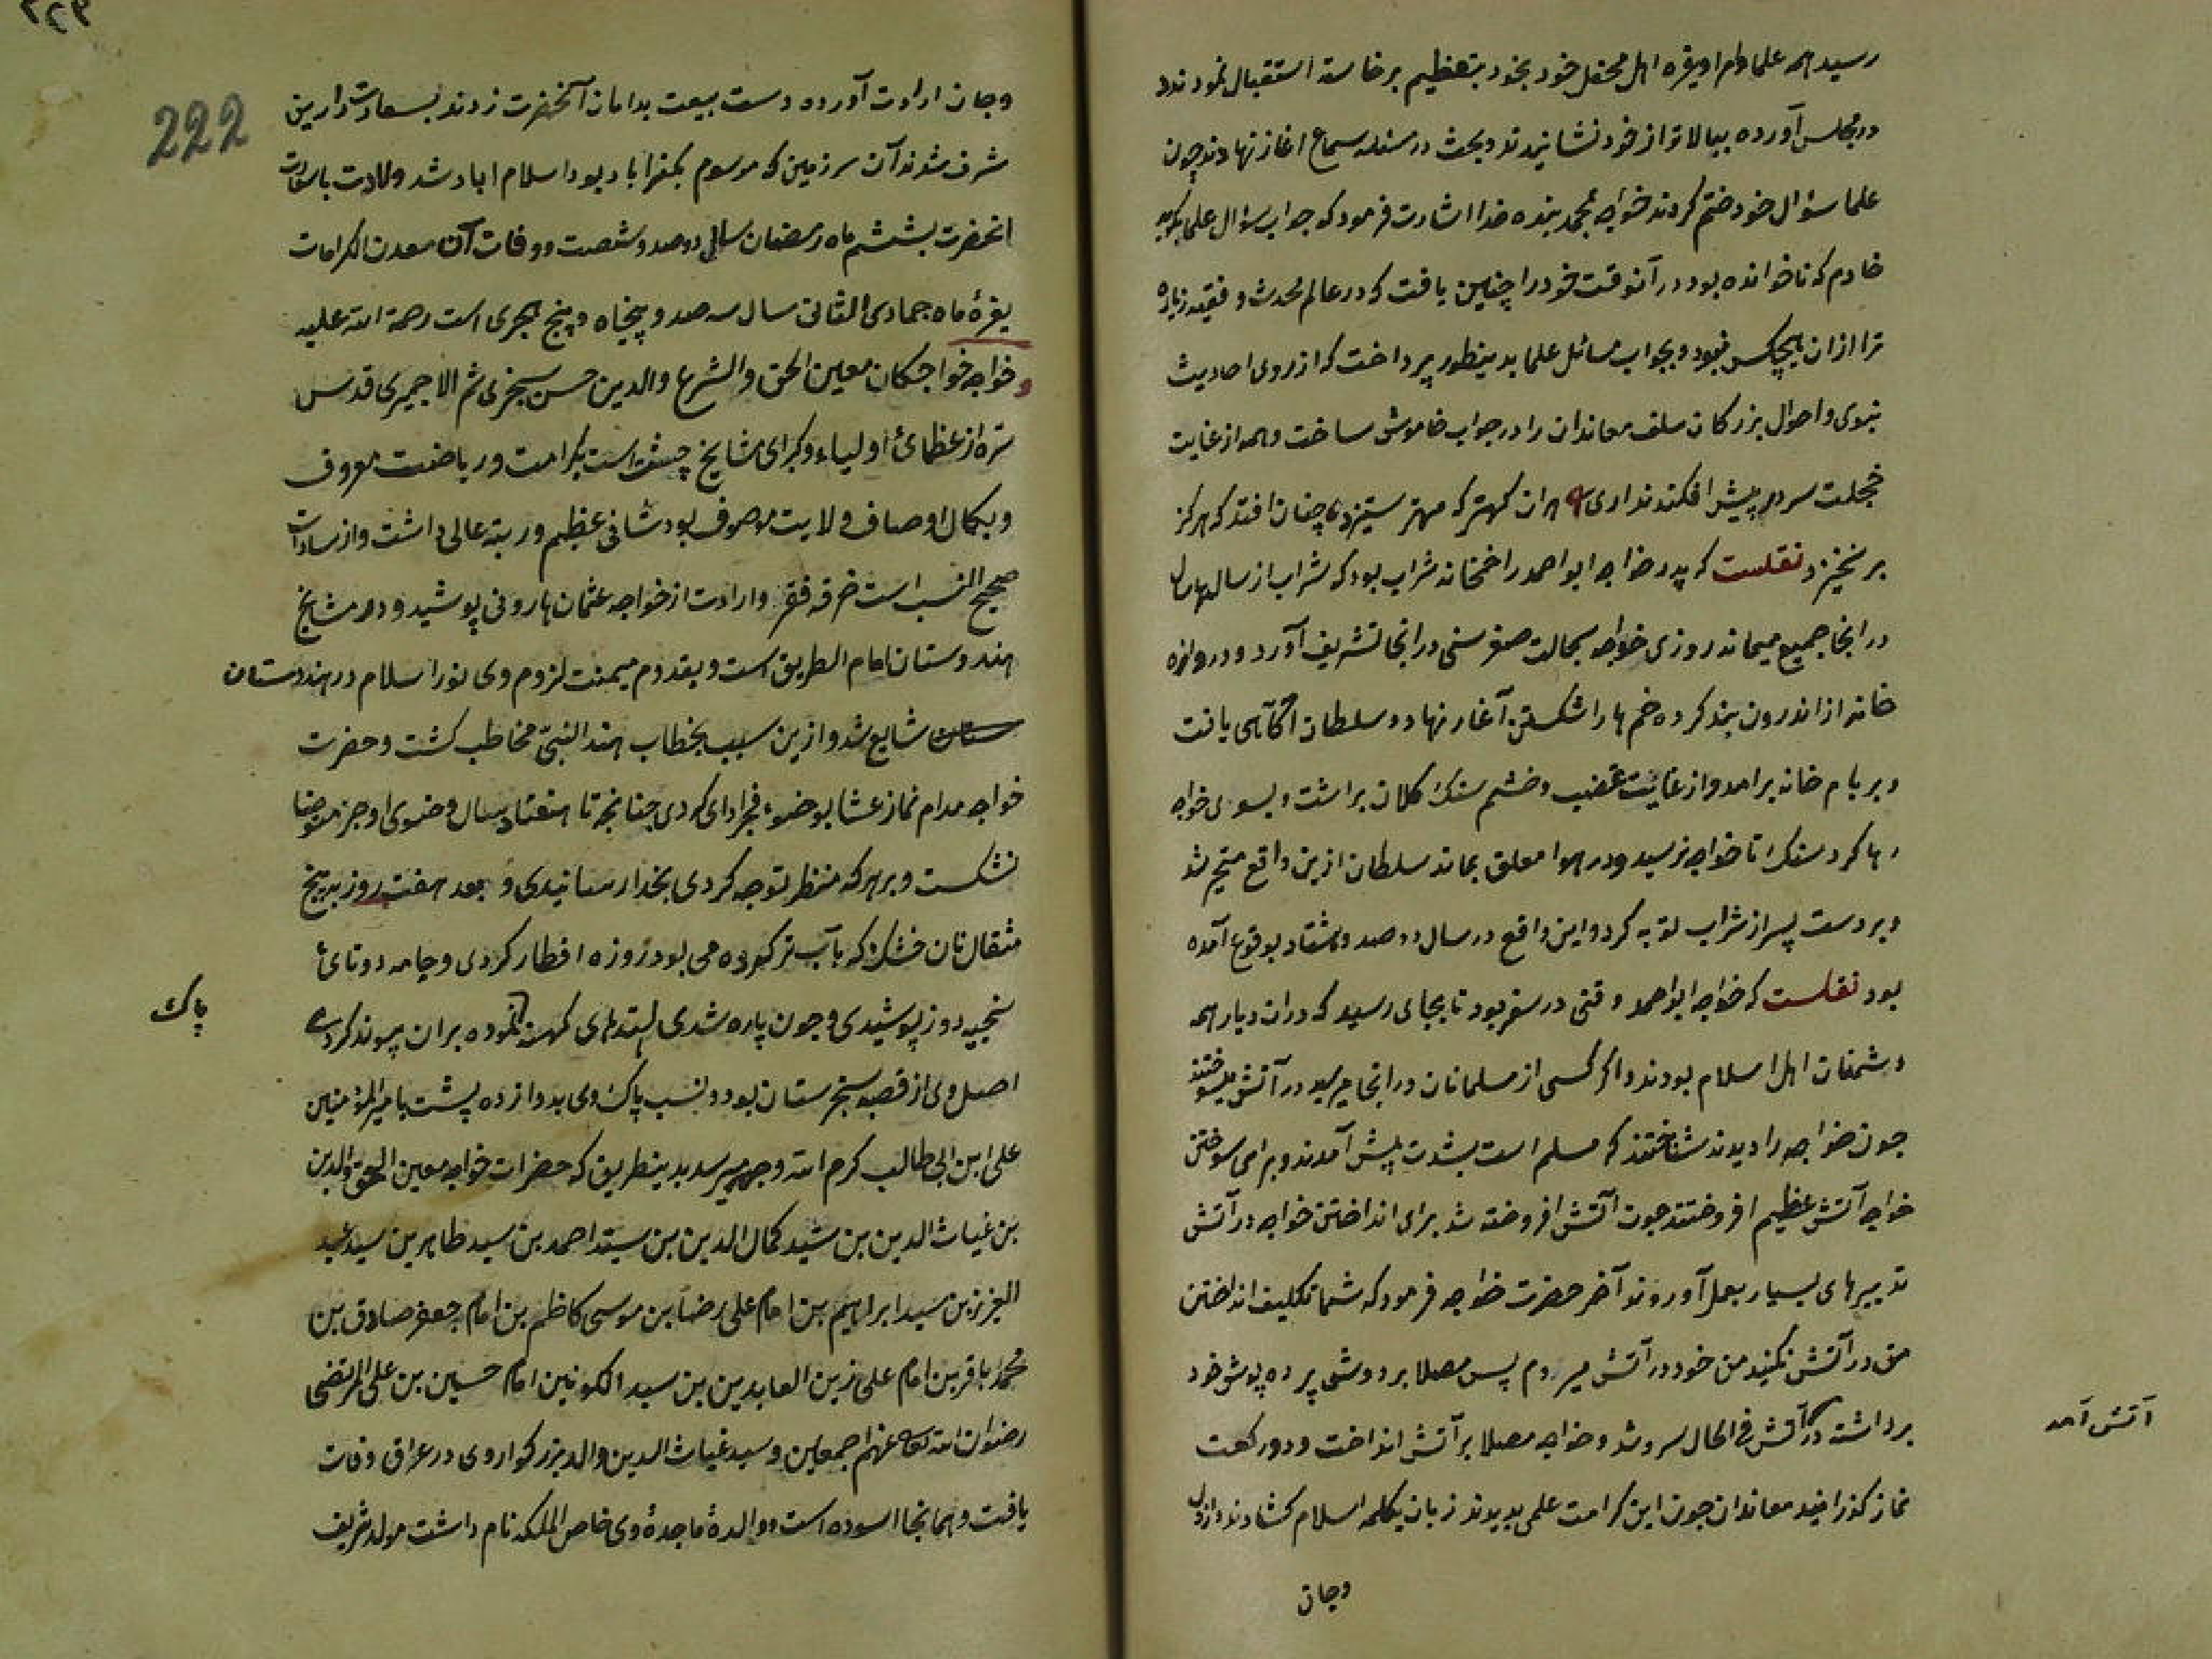 رسید همه علما و امرا وغیره اهل محفل خود بخود بتعظیم برخاسته استقبال نمودند و
در مجلس آورده ببالاتر از خود نشانیدند و بحث در مسئله سماع اغاز نهادند چون
علما سئوال خود ختم کردند خواجه محمد بنده خدا اشارت فرمود که جواب سوال علما بگوید
خادم که ناخوانده بود در آنوقت خود را چنین یافت که در عالم محدث و فقیه زیاده
تر ازان هیچکس نبود و بجواب مسائل علما بدینطور پرداخت که از روی احادیث
نبوی و احوال بزرکان سلف معاندان را در جواب خاموش ساخت و همه از غایت
خجلت سر در پیش افکندند اری هران کهتر که مهتر ستیزد چنان افتد که هرکز
بر نخیزد نقلست که پدر خواجه ابو احمد را خمخانه شراب بود که شراب از سالهای سال
در انجا جمیع میماند روزی خواجه بحالت صغر سنی در انجا تشریف آورد و دروازه
خانه از اندرون بند کرده خم ها را شکستن آغاز نهاد و سلطان آکاهی یافت
و بر بام خانه برامد و از غایت غضب و خشم سنک کلان برداشت و بسوی خواجه
رها کرد سنک تا خواجه نرسید و در هوا معلق بماند سلطان ازین واقع متحیر شد
و بر دست پسر از شراب توبه کرد و این واقع در سال دو صد و هشتاد بوقوع آمده
بود نقلست که خواجه ابو احمد وقتی در سفر بود تا بجای رسید که دران دیار همه
دشمنان اهل اسلام بودند و اکر کسی از مسلمانان در انجا میرسید در آتش میسوختند
چون خواجه را دیدند شناختند که مسلم است بشدت پیش آمدند و برای سوختن
خواجه آتش عظیم افروختند چون آتش افروخته شد برای انداختن خواجه در آتش
تدبیرهای بسیار بعمل آوردند آخر حضرت خواجه فرمود که شما تکلیف انداختن
من در آتش نکنید من خود در آتش میروم پس مصلا بر دوشی پرده پوش خود
برداشته در آتش فی الحال سرد شد و خواجه مصلا بر آتش انداخت و دو رکعت
آتش آمد
نماز کذرانید معاندان چون این کرامت علمی بدیدند زبان بکلمه اسلام کشادند و از دل
و جان
222
و جان ارادت آورده دست بیعت بدامان آنحضرت زدند بسعادت دارین
شرف شدند آن سرزمین که موسوم بکفراباد بود اسلام اباد شد ولادت باسعادت
انحضرت بششم ماه رمضان سال دو صد و شصت و وفات آن معدن الکرامات
بغره ماه جمادی الثانی سال سه صد و پنجاه و پنج هجری است رحمة الله علیه
و خواجه خواجکان معین الحق و الشرع و الدین حسن سجزی ثم الاجمیری قدس
سره از عظمائ اولیاء و کبرای مشایخ چشت است بکرامت و ریاضت معروف
و بکمال اوصاف ولایت موصوف بود شانی عظیم و رتبه عالی داشت و از سادات
صحیح النسب است خرقه فقر و ارادت از خواجه عثمان هارونی پوشید و در مشایخ
هندوستان امام الطریق است و بقدوم میمنت لزوم وی نور اسلام در هندوستان
شایع شد و ازین سبب بخطاب هند النبی مخاطب کشت و حضرت
خواجه مدام نماز عشا بوضوء فجر ادای کردی چنانچه تا هفتاد سال وضوی او جز متوضا
نشکست و بر هر که منظر توجه کردی بخدا رسانیدی و بعد هفت روز به پنج
مثقال نان خشک که بآب تر کرده می بود روزه افطار کردی و جامه دوتائ
بخیه دوز پوشیدی و چون پاره شدی لته های کهنه نموده بران پیوند کردے
پاک
اصل وی از قصبه سجزستان بود و نسب پاک وی بدوازده پشت بامیر المؤمنین
علی ابن ابی طالب کرم الله وجهه میرسد بدینطریق که حضرات خواجه معین الحق و الدین
بن غیاث الدین بن سید کمال الدین بن سید احمد بن سید طاهر بن سید عبد
العزیز بن سید ابراهیم بن امام علی رضا بن موسی کاظم بن امام جعفر صادق بن
محمد باقر بن امام علی زین العابدین بن سید الکونین امام حسین بن علی المرتضی
رضوان الله تعالی عنهم اجمعین و سید غیاث الدین والد بزرکوار وی در عراق وفات
یافت و همانجا اسوده است و والدهٔ ماجدهٔ وی خاص الملکه نام داشت مولد شریف